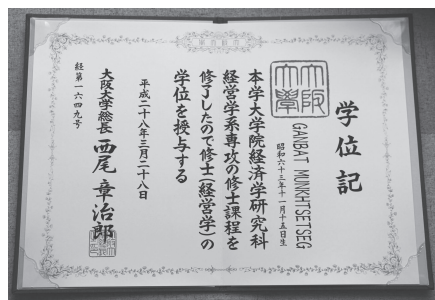 学位記
大阪大学
GANBAT MUNKHTSETSEG
昭和六十三年十一月十五日生
本学大学院経済学研究科
経営学系専攻の修士課程を
修了したので修士(経営学)の
学位を授与する
平成二十八年三月二十八日
大阪大学総長 西尾章治郎
経第一六四九号